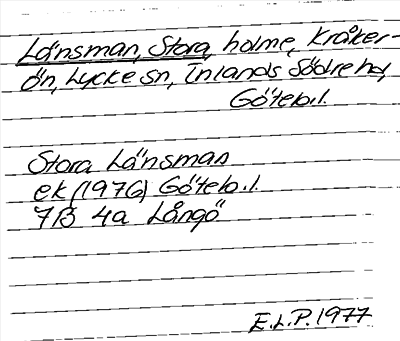 Länsman, Stora, holme, Kråker-
ön, Lycke sn, Inlands Södre hd,
Göteb.l.
Stora Länsman
ek (1976) Göteb.l.
7B 4a Långö
E.L.P. 1977